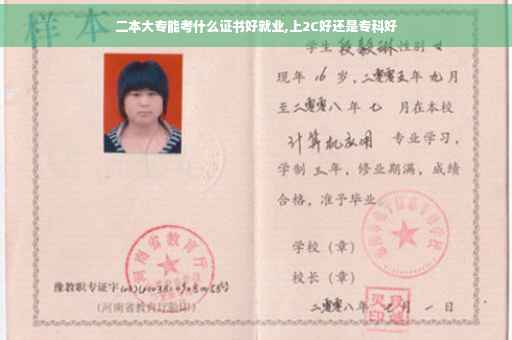 样本
二本大专能考什么证书好就业,上2C好还是专科好
学生 段毅琳 性别 女
现年 16 岁,二零零五年 九 月
至二零零八 年 七 月在本校
计算机应用 专业学习,
学制 三 年,修业期满,成绩
合格,准予毕业
学校(章)
校长(章)
二零零八年 七 月 一 日
河南省教育厅
豫教职专证字
(河南省教育厅验印)